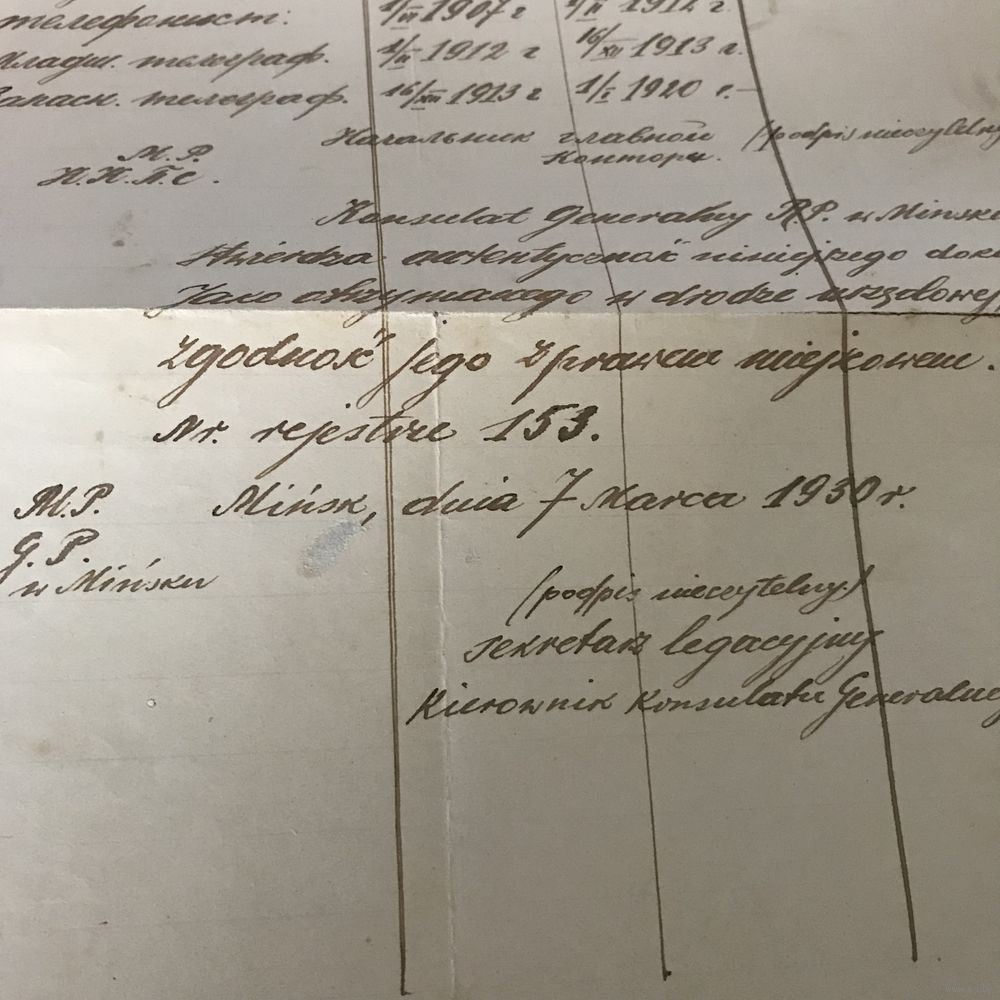 телефонист: 1/III 1907 г 1/II 1912 г.
Младш. телеграф. 1/II 1912 г 16/XII 1913 г.
телеграф. 16/XII 1913 г 1/I 1920 г.—
Начальник главной (podpis nieczytelny
М.Р. Конторы.
Н.К.П.С.
Konsulat Generalny R.P. w Mińsku
stwierdza autentyczność niniejszego doku
jako otrzymanego w drodze urzędowej
zgodność jego z prawem miejscowem.
Nr. rejestru 153.
M.P. Mińsk, dnia 7 Marca 1930 r.
G.P.
w Mińsku
(podpis nieczytelny)
sekretarz legacyjny
Kierownik Konsulatu Generalneg